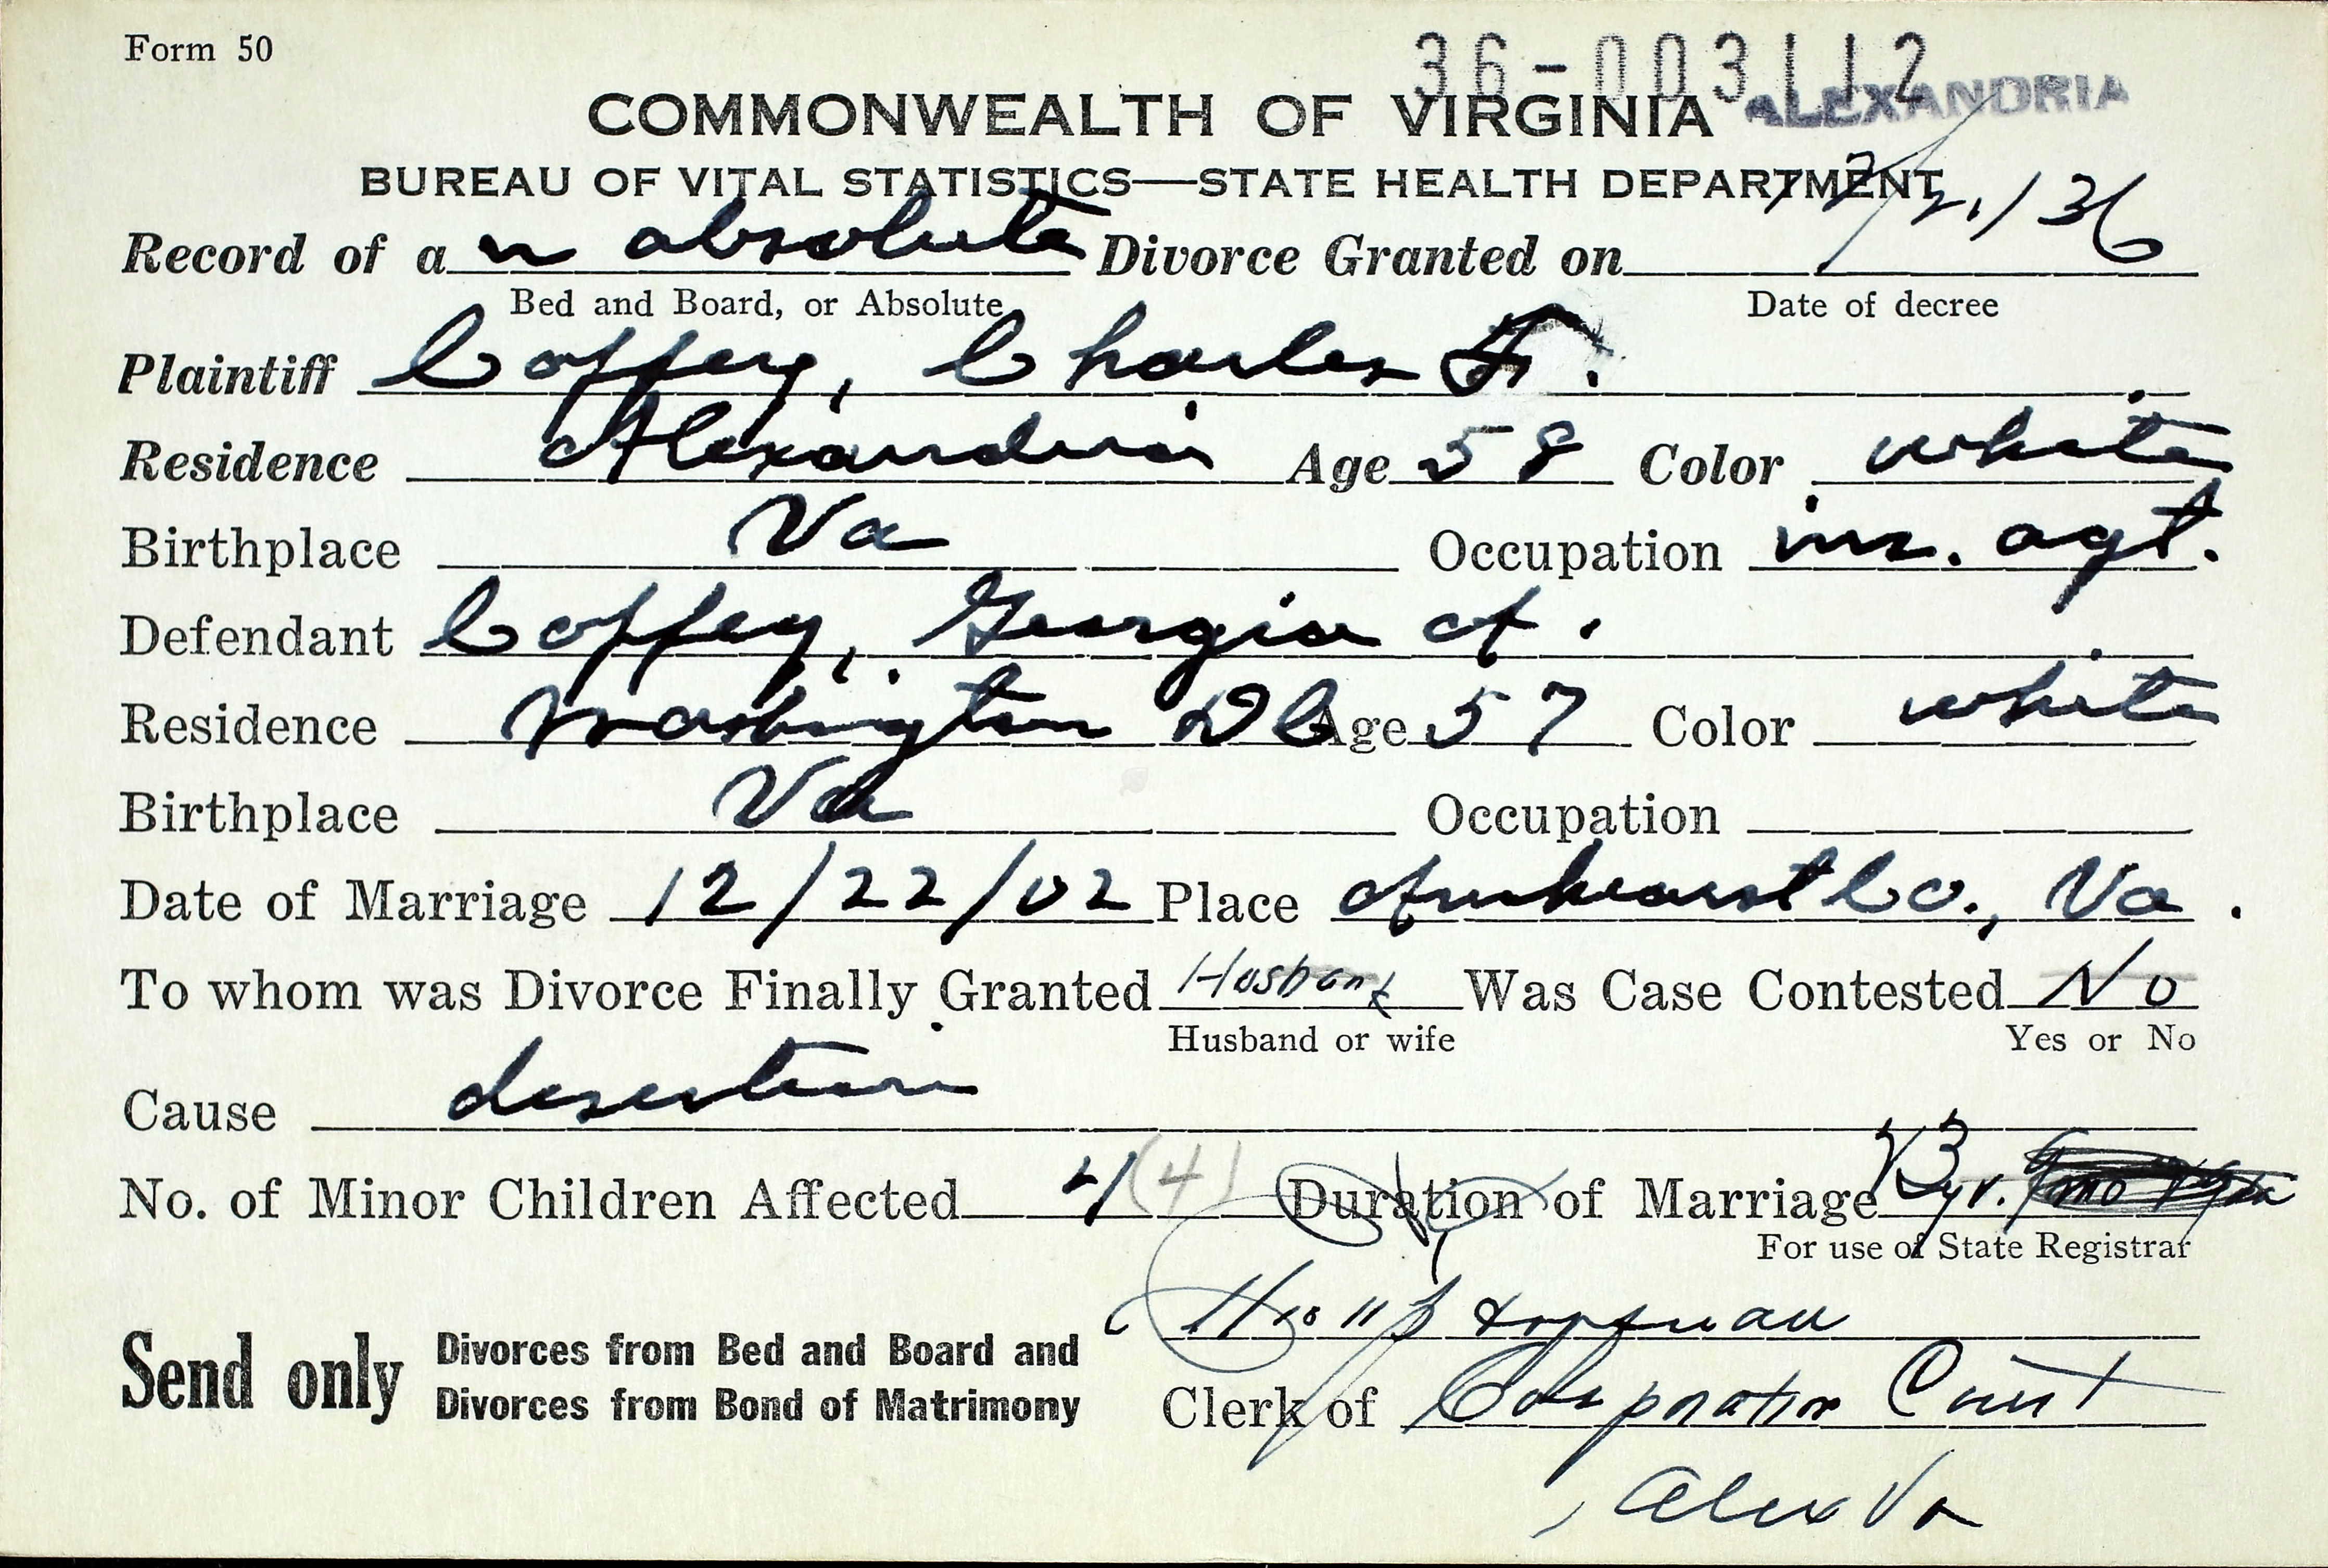 Form 50
36-003112
COMMONWEALTH OF VIRGINIA ALEXANDRIA
BUREAU OF VITAL STATISTICS—STATE HEALTH DEPARTMENT
Record of a n absolute Divorce Granted on /36
Bed and Board, or Absolute Date of decree
Plaintiff Coffey, Charles F.
Residence Alexandria Age 58 Color white
Birthplace Va Occupation ins. agt.
Defendant Coffey, Georgia A.
Residence Washington DC Age 57 Color white
Birthplace Va Occupation
Date of Marriage 12/22/02 Place Amhearst Co., Va.
To whom was Divorce Finally Granted Husband Was Case Contested No
Husband or wife Yes or No
Cause desertion
No. of Minor Children Affected 4 (4) Duration of Marriage yr.
For use of State Registrar
Send only Divorces from Bed and Board and
Divorces from Bond of Matrimony
Clerk of Corporation Court
Alex Va